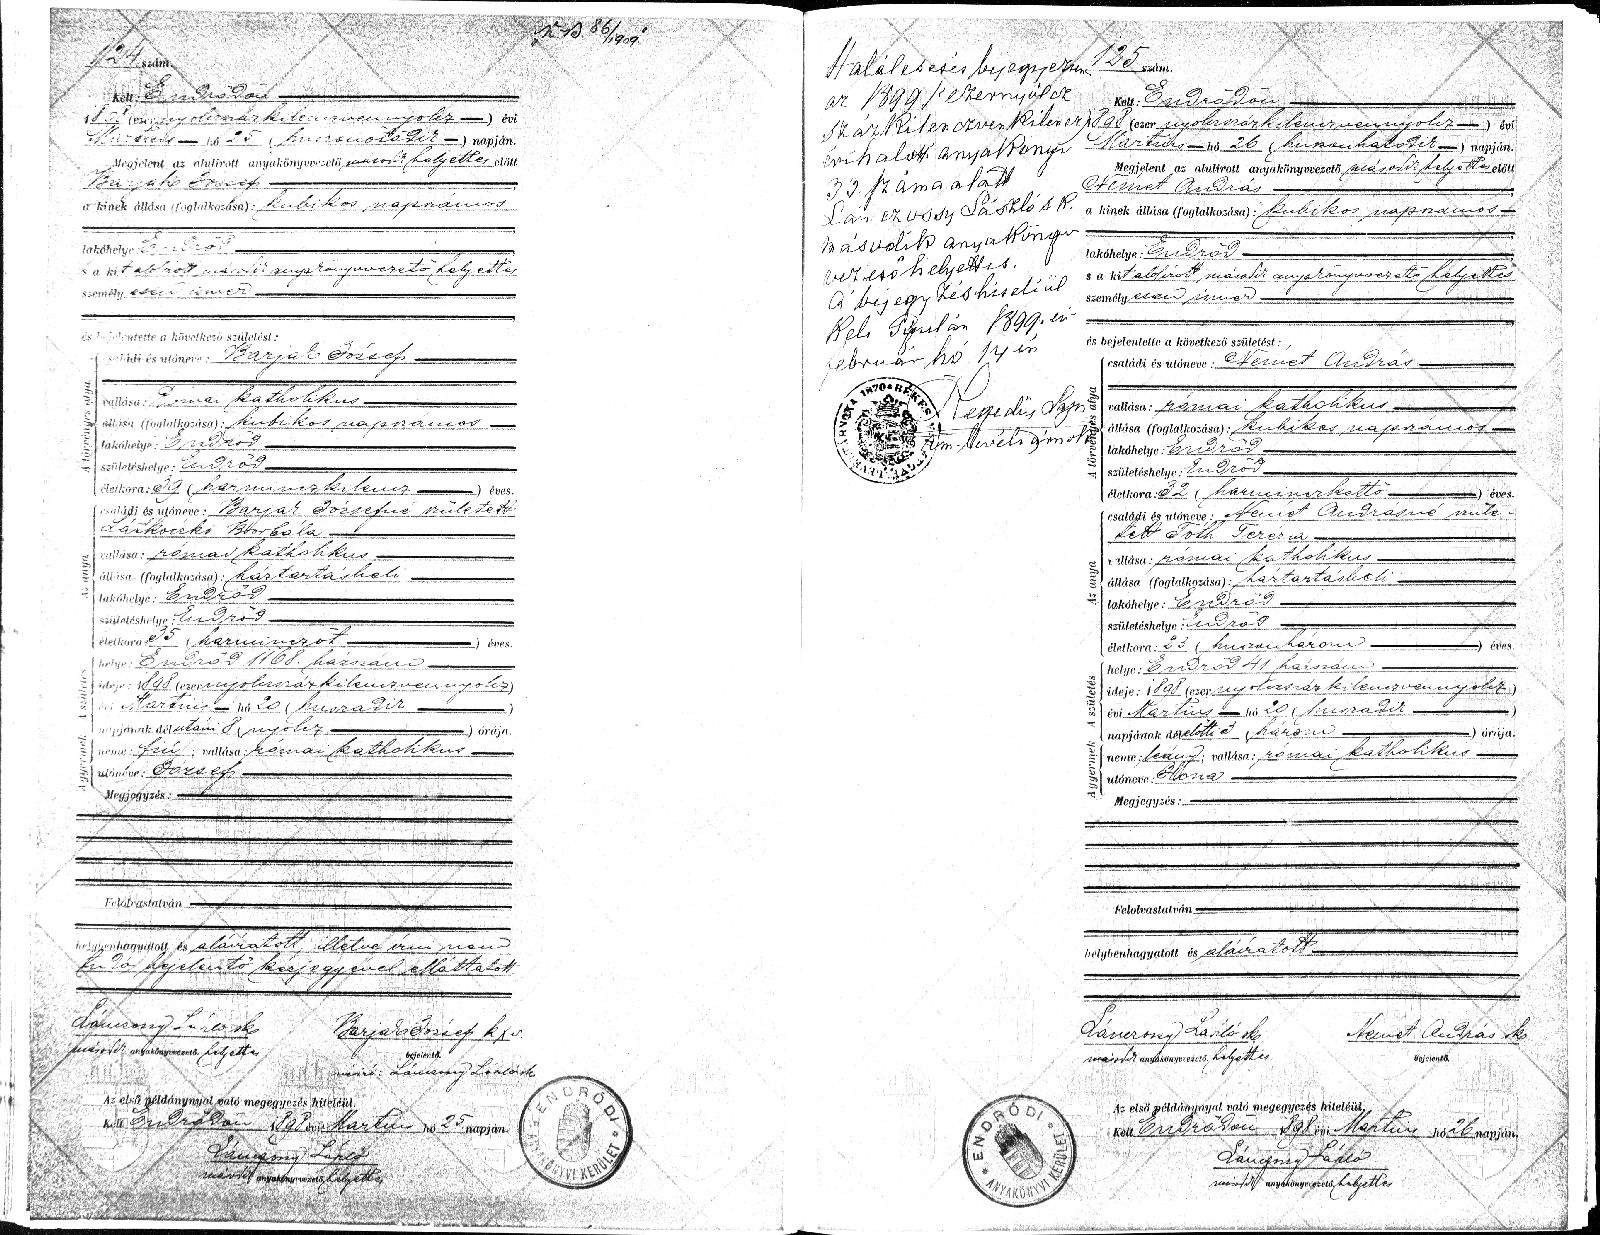 124 szám.
Kelt: Endrődön
(ezer nyolczszázkilenczvennyolcz) évi
Martius hó 25 (huszonötödik) napján.
Megjelent az alulirott anyakönyvvezető második helyettes előtt
Barják József
a kinek állása (foglalkozása): kubikos napszámos
lakóhelye Endrőd
s a kit alulirott második anyakönyvvezető helyettes
személyesen ismer
és bejelentette a következő születést:
családi és utóneve: Barják József
vallása: Római katholikus
állása (foglalkozása): kubikos napszámos
lakóhelye: Endrőd
születéshelye: Endrőd
életkora: 39 (harminczkilencz) éves.
családi és utóneve: Barják Józsefné született
Borbála
vallása: római katholikus
állása (foglalkozása): háztartásbeli
lakóhelye: Endrőd
születéshelye: Endrőd
életkora 35 (harminczöt) éves.
helye: Endrőd 1168. házszám
ideje: 1898 (ezer nyolczszázkilenczvennyolcz)
évi Martius hó 20 (huszadik)
napjának délutáni 8 (nyolcz) órája.
neme: fiú; vallása: római katholikus
utóneve: József
Megjegyzés:
Felolvastatván
helybenhagyatott és aláiratott, illetve irni nem
tudó bejelentő kézjegyével elláttatott
Lánczossy László sk
második anyakönyvvezető helyettes
Barják József
bejelentő.
Lánczossy László sk
Az első példánynyal való megegyezés hiteléül.
Kelt Endrődön 1898 évi Martius hó 25 napján.
Lánczossy László
második anyakönyvvezető helyettes
ENDRŐDI
ANYAKÖNYVI KERÜLET
86/1909
Halálesetés bejegyezve
az 1899 ezernyolcz
százkilenczvenkilencz
évi halotti anyakönyv
33 száma alatt
Lánczossy László s.k.
második anyakönyv
vezető helyettes.
A bejegyzés hiteléül
Kelt Gyulán 1899. évi
február hó 14 én
1870 BÉKÉS
125 szám.
Kelt: Endrődön
1898 (ezer nyolczszázkilenczvennyolcz) évi
Martius hó 26 (huszonhatodik) napján.
Megjelent az alulirott anyakönyvvezető második helyettes előtt
Német András
a kinek állása (foglalkozása): kubikos napszámos
lakóhelye: Endrőd
s a kit alulirott második anyakönyvvezető helyettes
személyesen ismer
és bejelentette a következő születést:
családi és utóneve: Német András
vallása: római katholikus
állása (foglalkozása): kubikos napszámos
lakóhelye: Endrőd
születéshelye: Endrőd
életkora: 32 (harminczkettő) éves.
családi és utóneve: Német Andrásné szüle-
tett Tóth Terézia
vallása: római katholikus
állása (foglalkozása): háztartásbeli
lakóhelye: Endrőd
születéshelye: Endrőd
életkora: 23 (huszonhárom) éves.
helye: Endrőd 41 házszám
ideje: 1898 (ezer nyolczszázkilenczvennyolcz)
évi Martius hó 20 (huszadik)
napjának délelőtti 3 (három) órája.
neme: leány; vallása: római katholikus
utóneve: Ilona
Megjegyzés:
Felolvastatván
helybenhagyatott és aláiratott
Lánczossy László sk
második anyakönyvvezető helyettes
Német András sk
bejelentő.
Az első példánynyal való megegyezés hiteléül.
Kelt Endrődön 1898 évi Martius hó 26 napján.
Lánczossy László
második anyakönyvvezető helyettes
ENDRŐDI
ANYAKÖNYVI KERÜLET